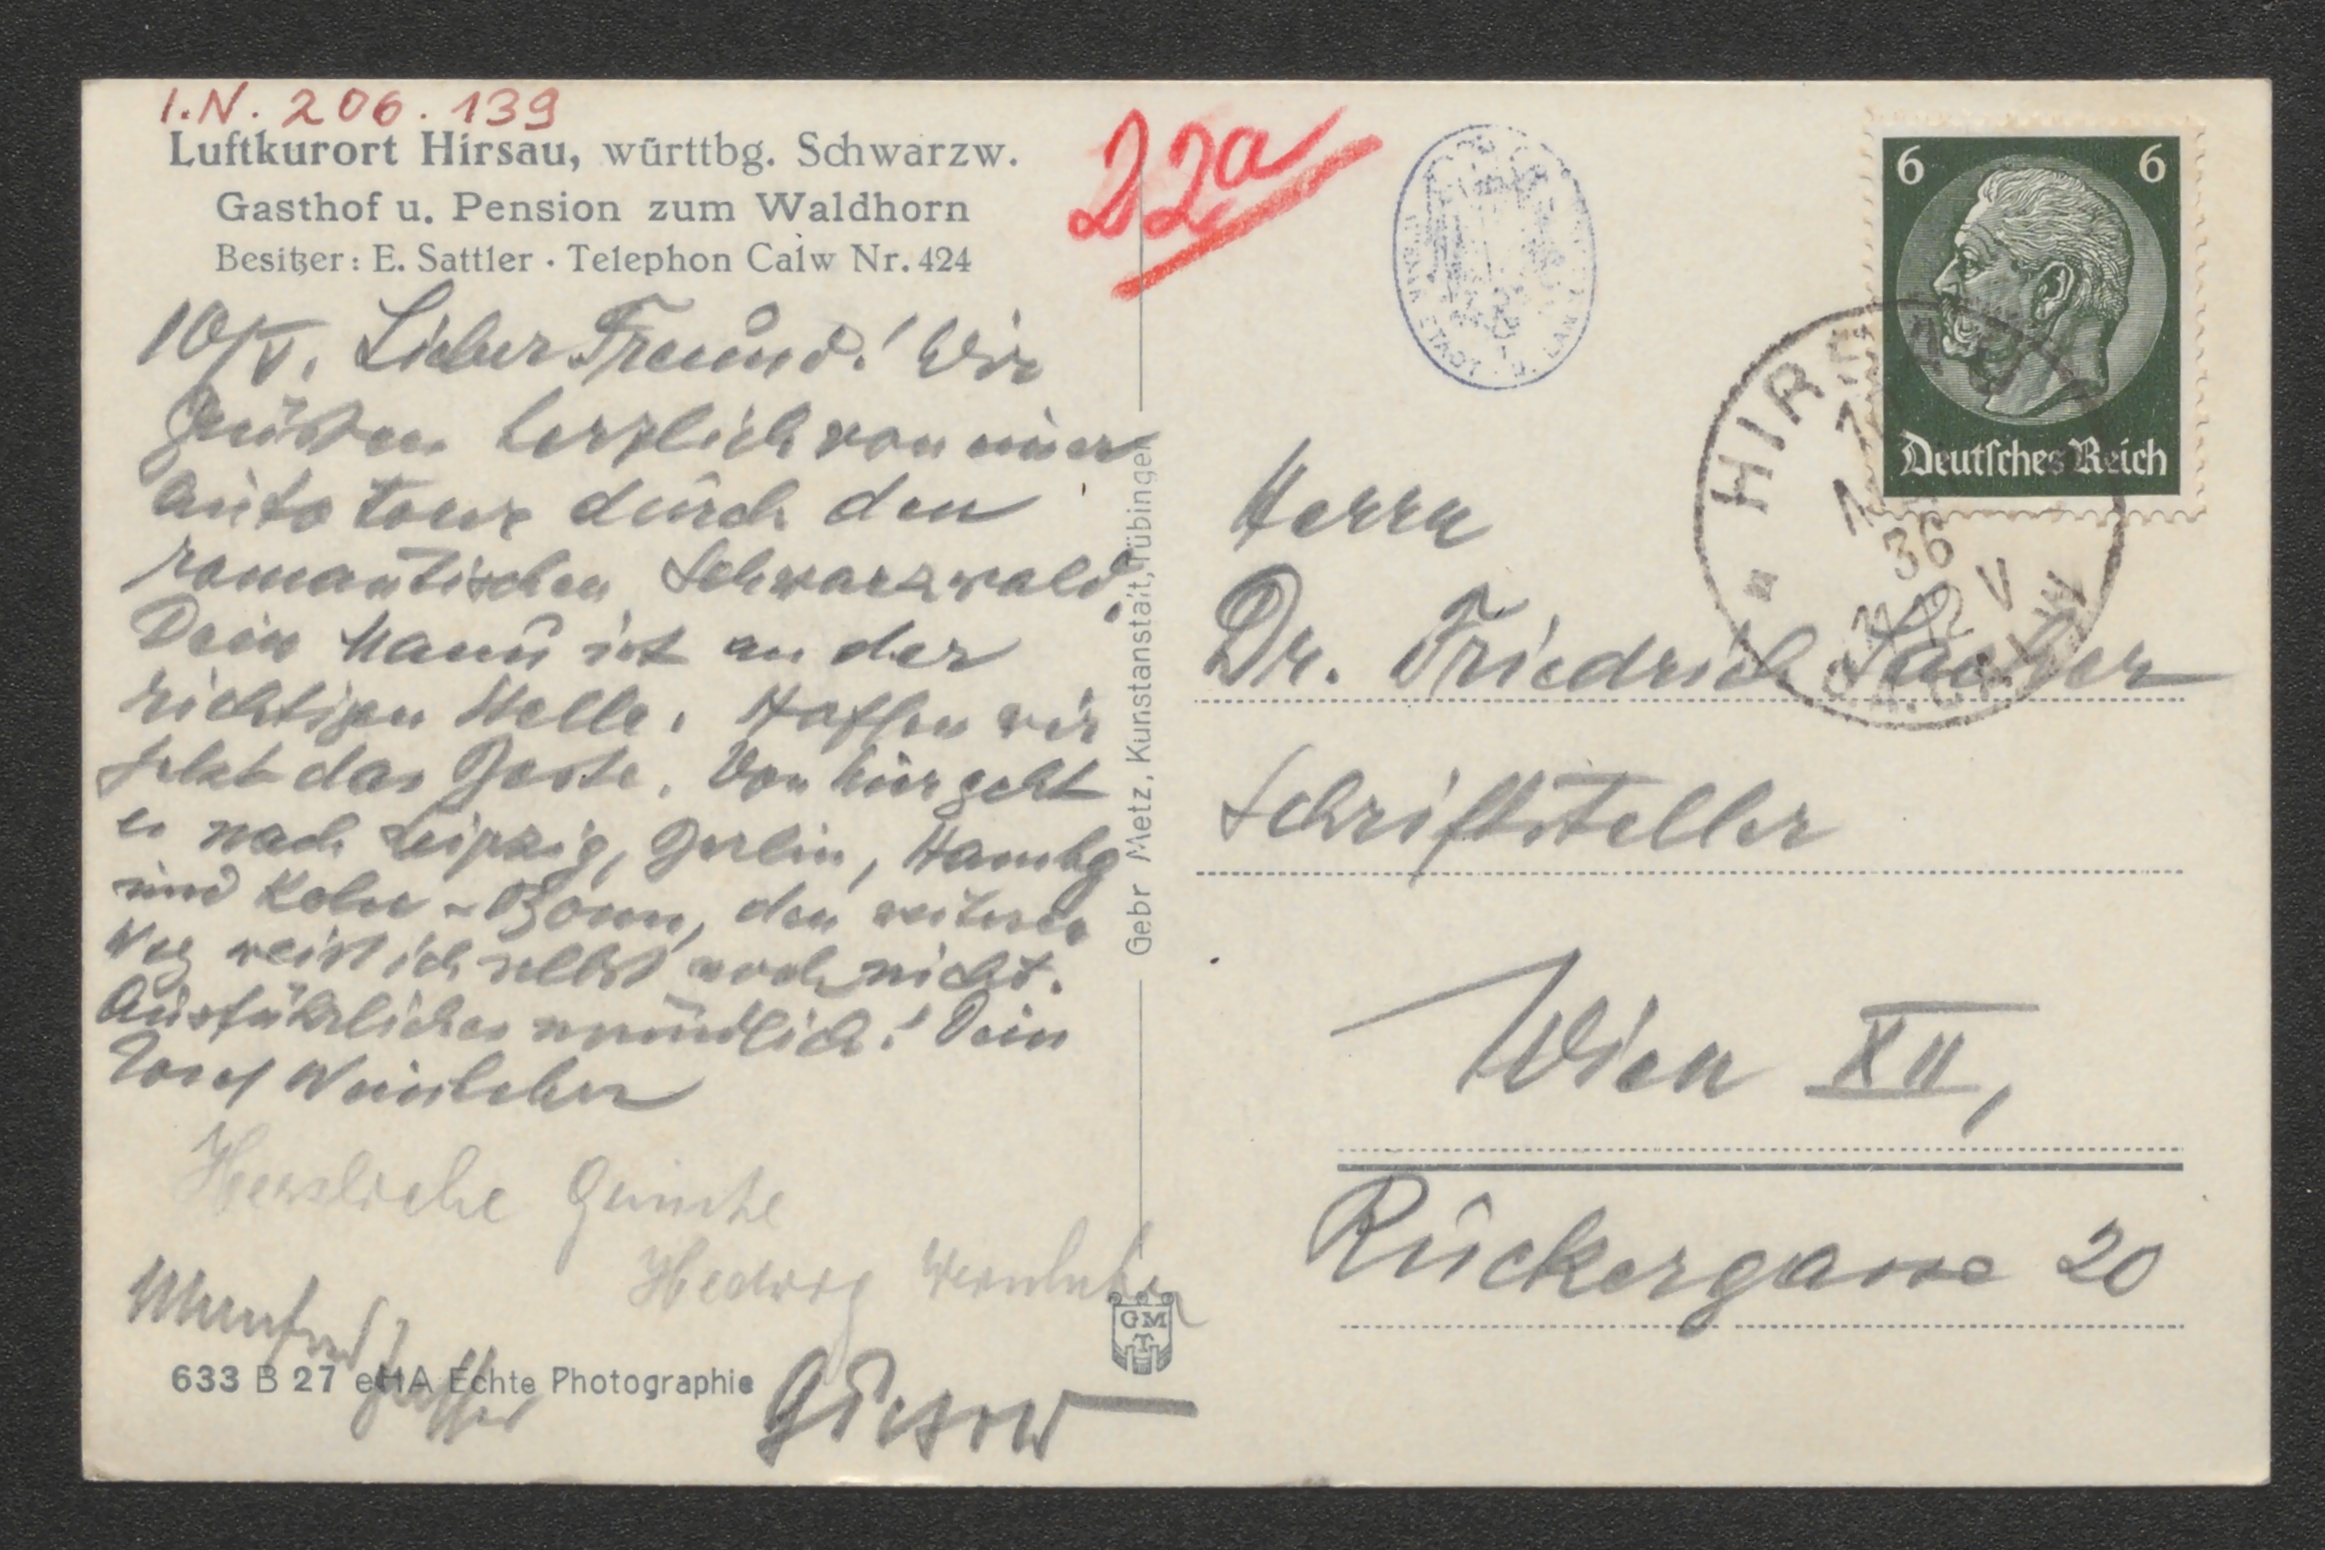 I.N. 206.139
Luftkurort Hirsau, württbg. Schwarzw.
Gasthof u. Pension zum Waldhorn
Besitzer: E. Sattler · Telephon Calw Nr. 424
22a
10/V. Lieber Freund! Wir
grüßen herzlich von einer
Autotour durch den
romantischen Schwarzwald.
Dein Manu ist an der
richtigen Stelle. Hoffen wir
jetzt das Beste. Von hier geht
es nach Leipzig, Berlin, Hambg
und Köln-Bonn, den weiteren
Weg weiß ich selbst noch nicht.
Ausführliches mündlich! Dein
Josef Weinheber
Herzliche Grüße
Hedwig Weinheber
633 B 27 Echte Photographie
Gebr Metz, Kunstanstalt, Tübingen
GMT
6 6
Deutsches Reich
36
Herrn
Dr. Friedrich Sacher
Schriftsteller
Wien XII,
Rückergasse 20